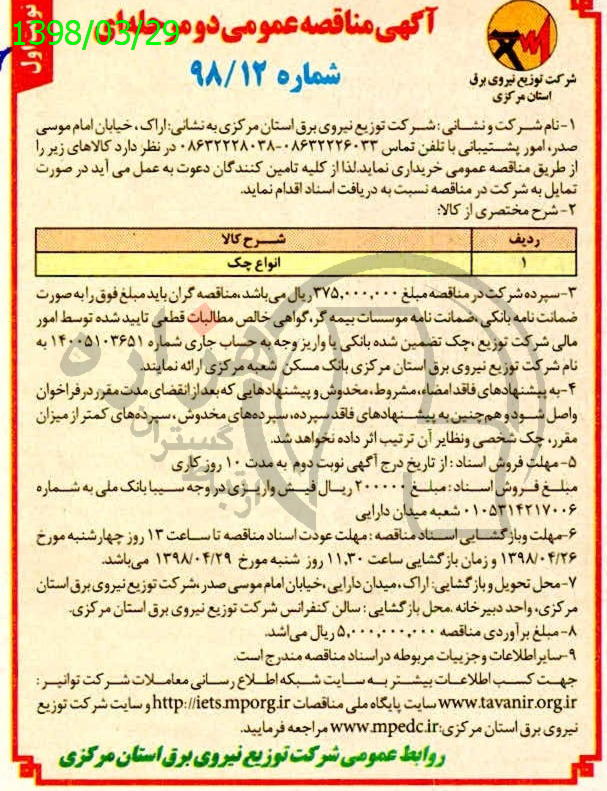 آگهی مناقصه عمومی دو مرحله‌ای
نوبت اول
1398/03/29
شماره ۹۸/۱۲
شرکت توزیع نیروی برق
استان مرکزی
۱-نام شرکت و نشانی: شرکت توزیع نیروی برق استان مرکزی به نشانی: اراک، خیابان امام موسی
صدر، امور پشتیبانی با تلفن تماس ۰۸۶۳۲۲۲۶۰۳۳-۰۸۶۳۲۲۲۸۰۳۸ در نظر دارد کالاهای زیر را
از طریق مناقصه عمومی خریداری نماید. لذا از کلیه تامین کنندگان دعوت به عمل می آید در صورت
تمایل به شرکت در مناقصه نسبت به دریافت اسناد اقدام نماید.
۲-شرح مختصری از کالا:
ردیف شرح کالا
۱ انواع جک
۳-سپرده شرکت در مناقصه مبلغ ۳۷۵,۰۰۰,۰۰۰ ریال می باشد، مناقصه گران باید مبلغ فوق را به صورت
ضمانت نامه بانکی، ضمانت نامه موسسات بیمه گر، گواهی خالص مطالبات قطعی تایید شده توسط امور
مالی شرکت توزیع، چک تضمین شده بانکی یا واریز وجه به حساب جاری شماره ۱۴۰۰۵۱۰۳۶۵۱ به
نام شرکت توزیع نیروی برق استان مرکزی بانک مسکن شعبه مرکزی ارائه نمایند.
۴-به پیشنهادهای فاقد امضاء، مشروط، مخدوش و پیشنهادهایی که بعد از انقضای مدت مقرر در فراخوان
واصل شود و هم چنین به پیشنهادهای فاقد سپرده، سپرده های مخدوش، سپرده‌های کمتر از میزان
مقرر، چک شخصی ونظایر آن ترتیب اثر داده نخواهد شد.
۵-مهلت فروش اسناد: از تاریخ درج آگهی نوبت دوم به مدت ۱۰ روز کاری
مبلغ فروش اسناد: مبلغ ۲۰۰۰۰۰ ریال فیش واریزی در وجه سیبا بانک ملی به شماره
۰۱۰۵۳۱۴۲۱۷۰۰۶ شعبه میدان دارایی
۶-مهلت وبازگشایی اسناد مناقصه: مهلت عودت اسناد مناقصه تا ساعت ۱۳ روز چهارشنبه مورخ
۱۳۹۸/۰۴/۲۶ و زمان بازگشایی ساعت ۱۱,۳۰ روز شنبه مورخ ۱۳۹۸/۰۴/۲۹ می‌باشد.
۷-محل تحویل و بازگشایی: اراک، میدان دارایی، خیابان امام موسی صدر، شرکت توزیع نیروی برق استان
مرکزی، واحد دبیرخانه. محل بازگشایی: سالن کنفرانس شرکت توزیع نیروی برق استان مرکزی.
۸-مبلغ برآوردی مناقصه ۵,۰۰۰,۰۰۰,۰۰۰ ریال می‌اشد.
۹-سایر اطلاعات وجزییات مربوطه در اسناد مناقصه مندرج است.
جهت کسب اطلاعات بیشتر به سایت شبکه اطلاع رسانی معاملات شرکت توانیر:
www.tavanir.org.ir سایت پایگاه ملی مناقصات http://iets.mporg.ir و سایت شرکت توزیع
نیروی برق استان مرکزی: www.mpedc.ir مراجعه فرمایید.
روابط عمومی شرکت توزیع نیروی برق استان مرکزی